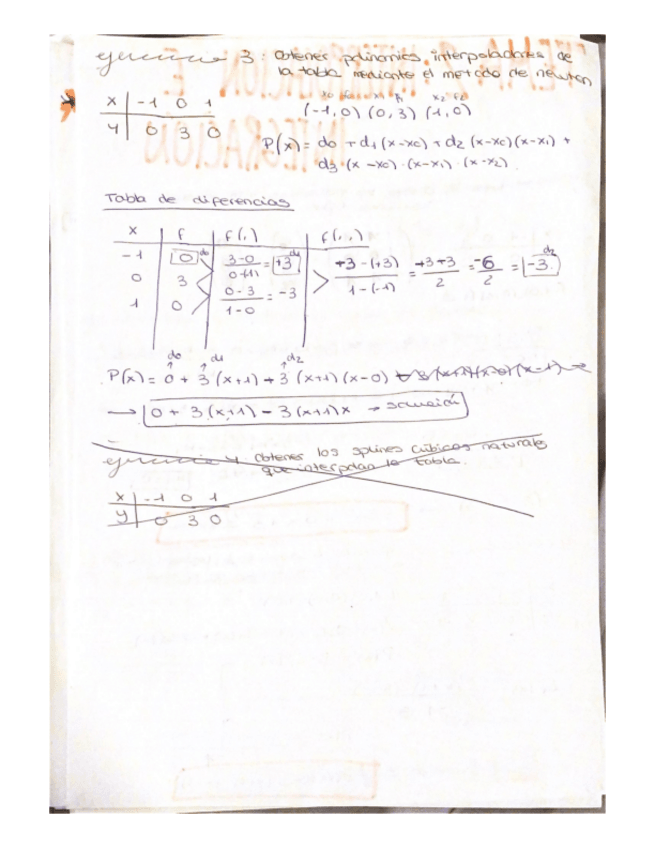 ejercicio 3: Obtener polinomios interpoladores de
la tabla mediante el metodo de newton
x | -1 0 1
y | 0 3 0
x0 f0 x1 f1 x2 f2
(-1,0) (0,3) (1,0)
P(x) = d0 + d1 (x-x0) + d2 (x-x0)(x-x1) +
d3 (x-x0)·(x-x1)·(x-x2)
Tabla de diferencias
x | f | f(,) | f(,,)
-1 | 0 d0 | 3-0 / 0-(-1) = +3 d1 | -3-(+3) / 1-(-1) = -3+3 / 2 = -6 / 2 = -3 d2
0 | 3 | 0-3 / 1-0 = -3
1 | 0
d0 d1 d2
P(x) = 0 + 3 (x+1) + 3 (x+1) (x-0)
→ 0 + 3 (x+1) - 3 (x+1) x → solución
ejercicio 4 obtener los splines cúbicos naturales
que interpolan la tabla.
x | -1 0 1
y | 0 3 0